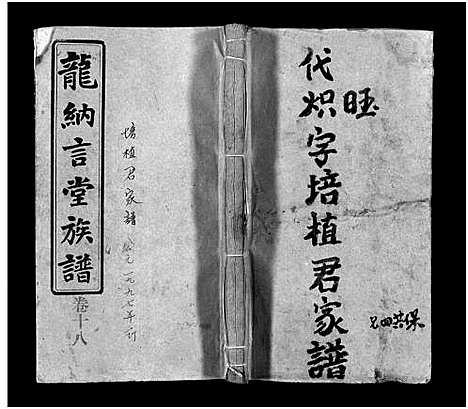 代炽字培植君家譜
旺
兄四共保
龍納言堂族譜
卷十八
培植君家譜 公元一九九七年订